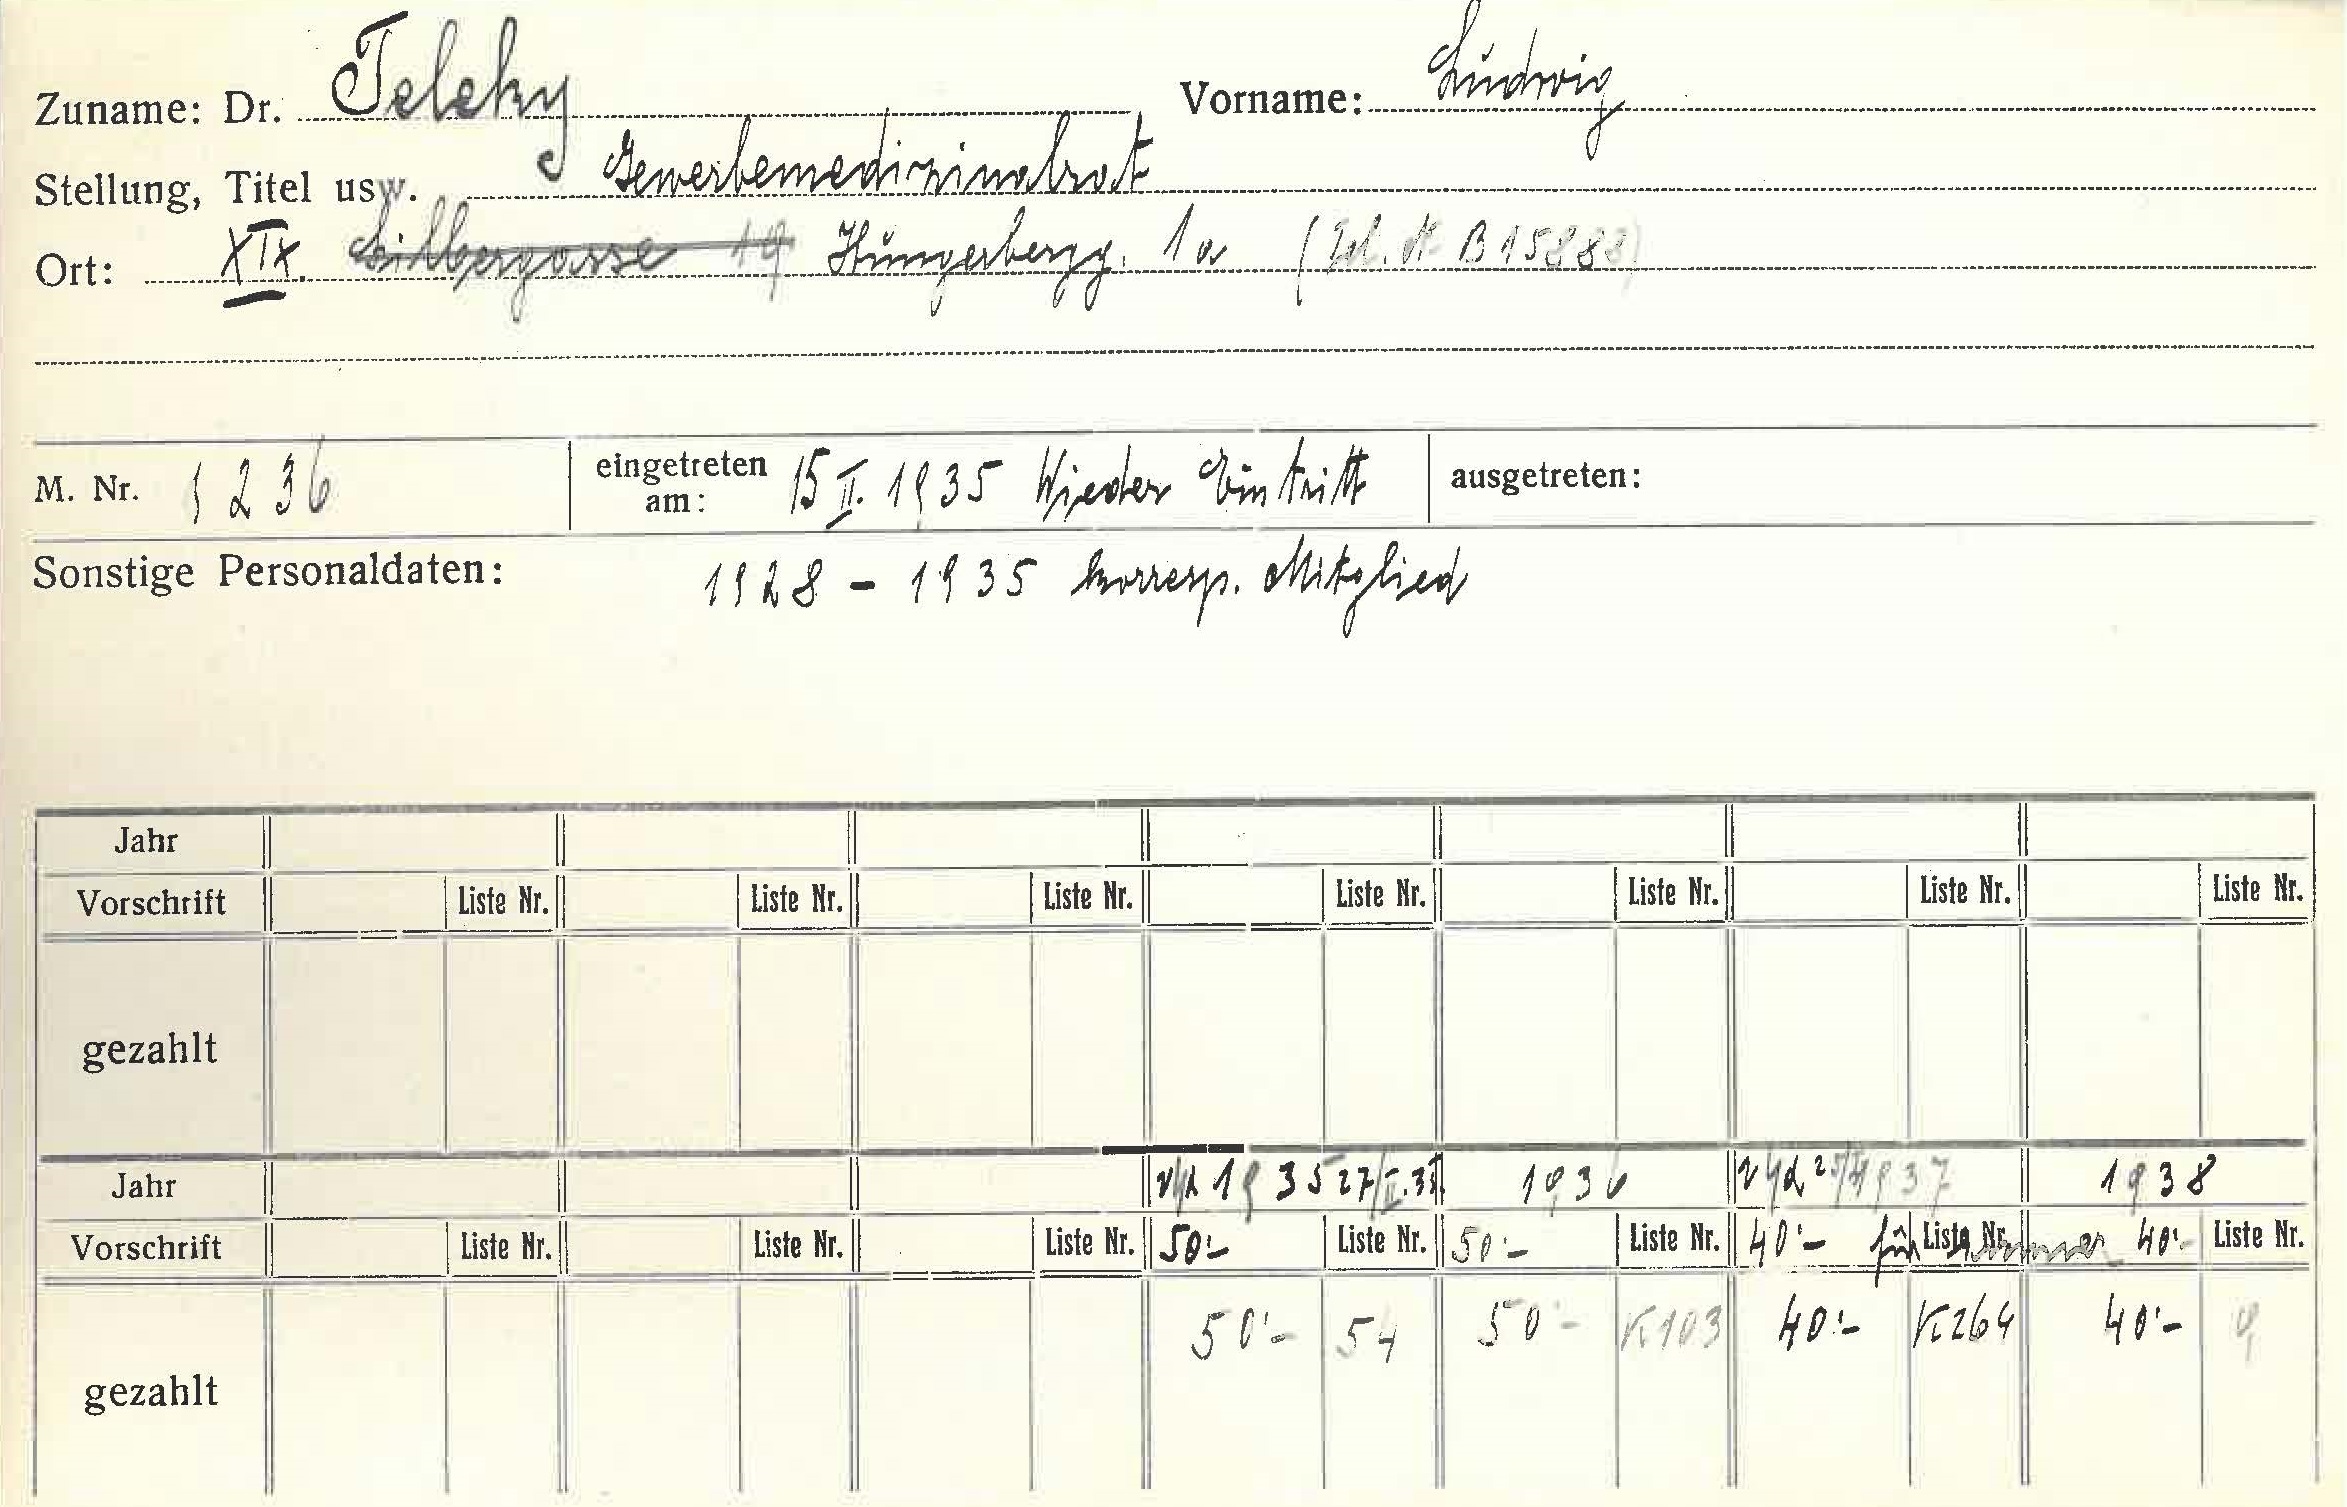 Zuname: Dr. Teleky Vorname: Ludwig
Stellung, Titel usw. Gewerbemedizinalrat
Ort: XIX. Silbergasse 19 Hungerbergg. 1a (Tel. B 15888)
M. Nr. 1236 eingetreten am: 15 II. 1935 Wieder Eintritt ausgetreten:
Sonstige Personaldaten: 1928 - 1935 korresp. Mitglied
Jahr
Vorschrift Liste Nr. Liste Nr. Liste Nr. Liste Nr. Liste Nr. Liste Nr. Liste Nr.
gezahlt
Jahr 1935 27/II.35. 1936 1937 1938
Vorschrift Liste Nr. Liste Nr. Liste Nr. 50.- Liste Nr. 50.- Liste Nr. 40.- für Liste Nr. immer 40.- Liste Nr.
gezahlt 50.- 54 50.- K103 40.- K264 40.- 9